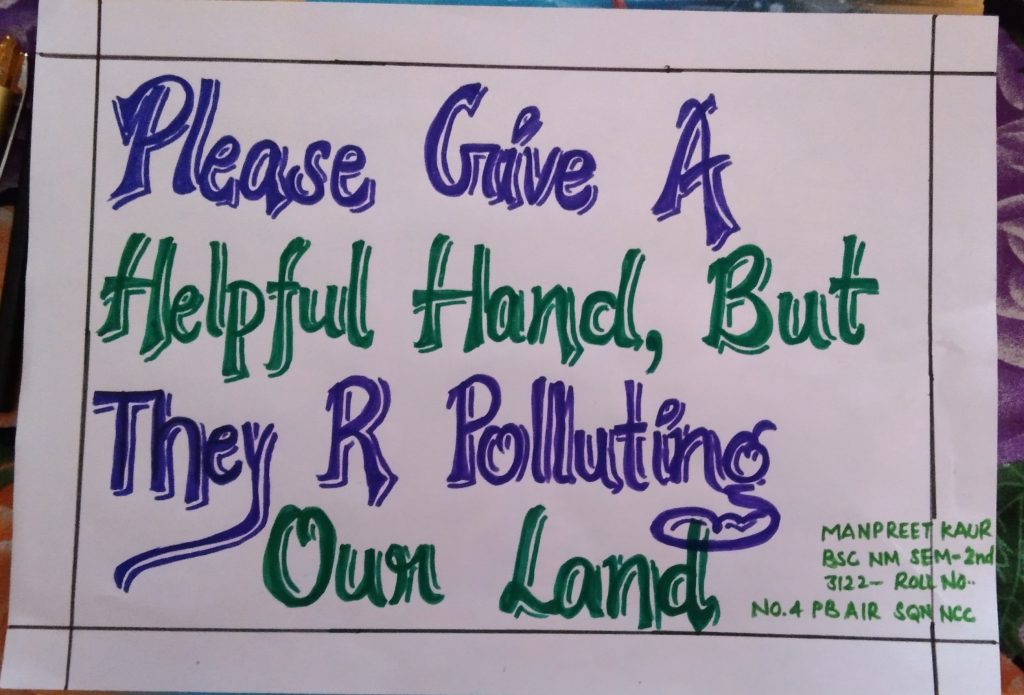 Please Give A
Helpful Hand, But
They R Polluting
Our Land
MANPREET KAUR
BSC NM SEM-2nd
3122- ROLL NO..
NO.4 PB AIR SQN NCC